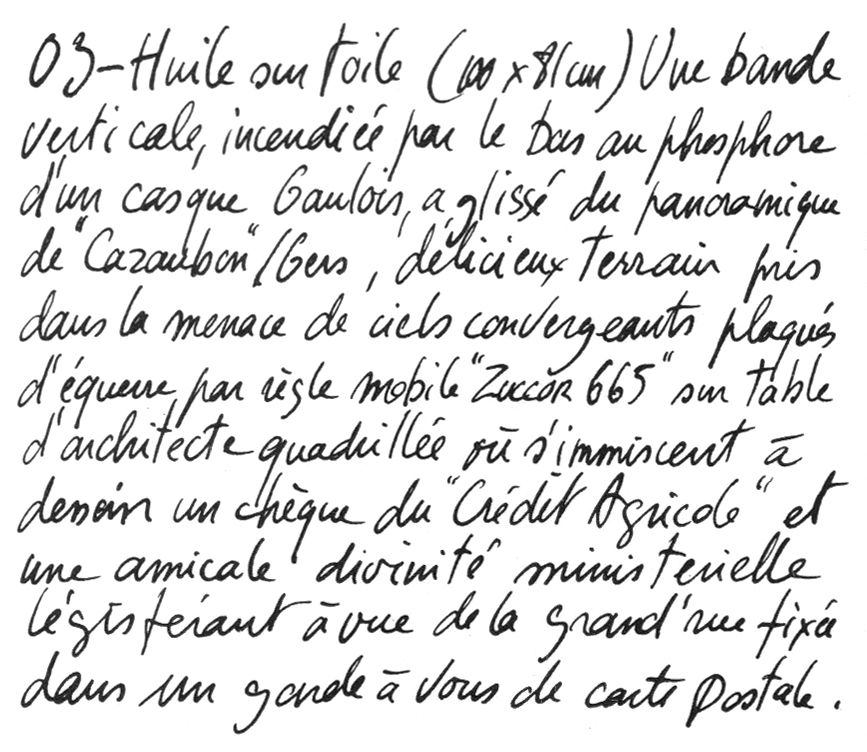 03-Huile sur toile (100 x 81cm) Une bande
verticale, incendiée par le bas au phosphore
d'un casque Gaulois, a glissé du panoramique
de "Cazaubon"/Gers, délicieux terrain pris
dans la menace de ciels convergeants plaqués
d'équerre par règle mobile "Zuccor 665" sur table
d'architecte quadrillée où s'immiscent à
dessein un chèque du "Crédit Agricole" et
une amicale divinité ministerielle
légiférant à vue de la grand'rue fixée
dans un garde à vous de carte postale.